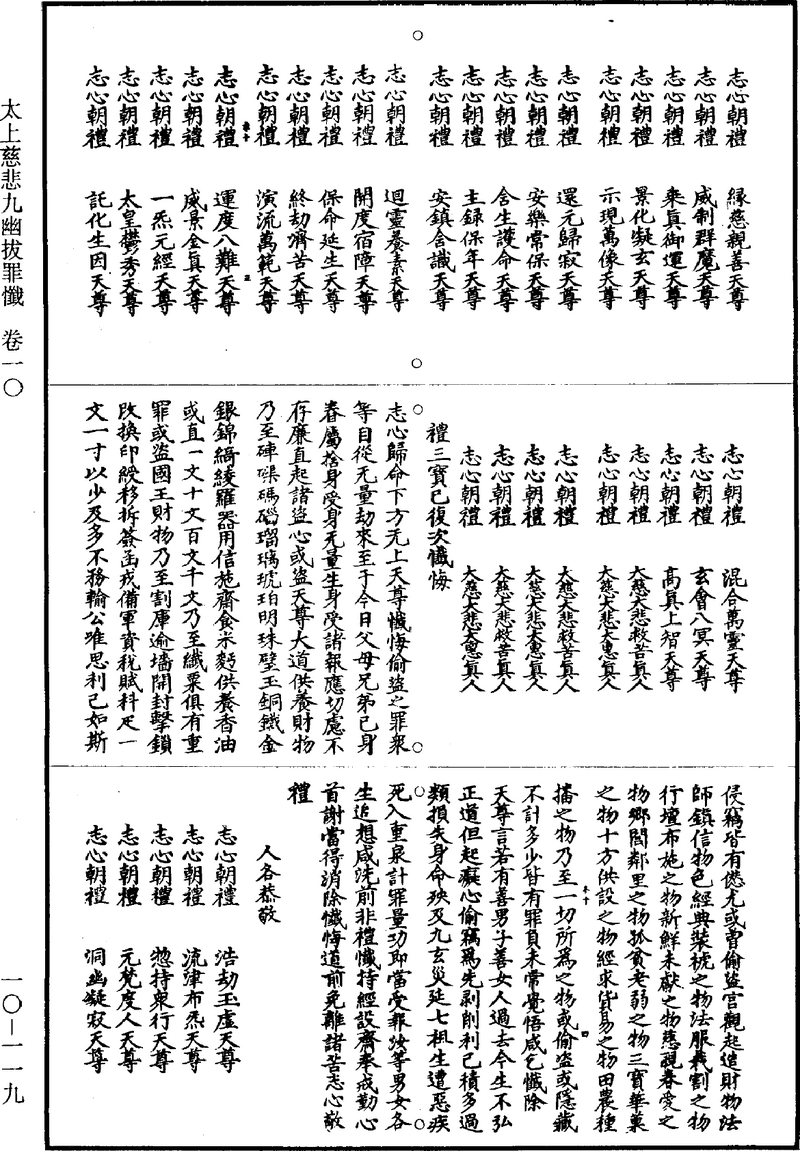 太上慈悲九幽拔罪懺 卷一〇
一〇—一一九
志心朝禮 緣慈親善天尊
志心朝禮 威制群魔天尊
志心朝禮 乘真御運天尊
志心朝禮 景化凝玄天尊
志心朝禮 示現萬像天尊
志心朝禮 還元歸寂天尊
志心朝禮 安樂常保天尊
志心朝禮 含生護命天尊
志心朝禮 主錄保年天尊
志心朝禮 安鎮含識天尊
志心朝禮 迴靈養素天尊
志心朝禮 開度宿障天尊
志心朝禮 保命延生天尊
志心朝禮 終劫濟苦天尊
志心朝禮 演流萬範天尊
卷十 三
志心朝禮 運度八難天尊
志心朝禮 威景全真天尊
志心朝禮 一炁元經天尊
志心朝禮 太皇鬱秀天尊
志心朝禮 託化生因天尊
志心朝禮 混合萬靈天尊
志心朝禮 玄會八冥天尊
志心朝禮 高真上智天尊
志心朝禮 大慈大悲救苦真人
志心朝禮 大慈大悲大惠真人
志心朝禮 大慈大悲救苦真人
志心朝禮 大慈大悲大惠真人
志心朝禮 大慈大悲救苦真人
志心朝禮 大慈大悲大惠真人
禮三寶已復次懺悔
志心歸命下方无上天尊懺悔偷盜之罪眾
等自從无量劫來至于今日父母兄弟己身
眷屬捨身受身无量生身受諸報應切慮不
存廉直起諸盜心或盜天尊大道供養財物
乃至硨磲碼碯瑠璃琥珀明珠璧玉銅鐵金
銀錦綺綾羅器用信施齋食米麪供養香油
或直一文十文百文千文乃至纖粟俱有重
罪或盜國王財物乃至割庫逾墻開封擊鎖
改換印綬移拆簽函戎備軍資稅賦料疋一
文一寸以少及多不務輸公唯思利己如斯
侵竊皆有愆尤或曾偷盜宮觀起造財物法
師鎮信物色經典裝褫之物法服義割之物
行壇布施之物新鮮未獻之物慈親眷愛之
物鄉閭鄰里之物孤貧老弱之物三寶華菓
之物十方供設之物經求貨易之物田農種
卷十 四
播之物乃至一切所爲之物或偷盜或隱藏
不計多少皆有罪負未常覺悟咸乞懺除
天尊言若有善男子善女人過去今生不弘
正道但起癡心偷竊爲先剥削利己積多過
類損失身命殃及九玄災延七祖生遭惡疾
死入重泉計罪量功即當受報汝等男女各
生追想咸洗前非禮懺持經設齋奉戒勤心
首謝當得消除懺悔道前免離諸苦志心敬
禮
人各恭敬
志心朝禮 浩劫玉虛天尊
志心朝禮 流津布炁天尊
志心朝禮 惣持眾行天尊
志心朝禮 元梵度人天尊
志心朝禮 洞幽凝寂天尊